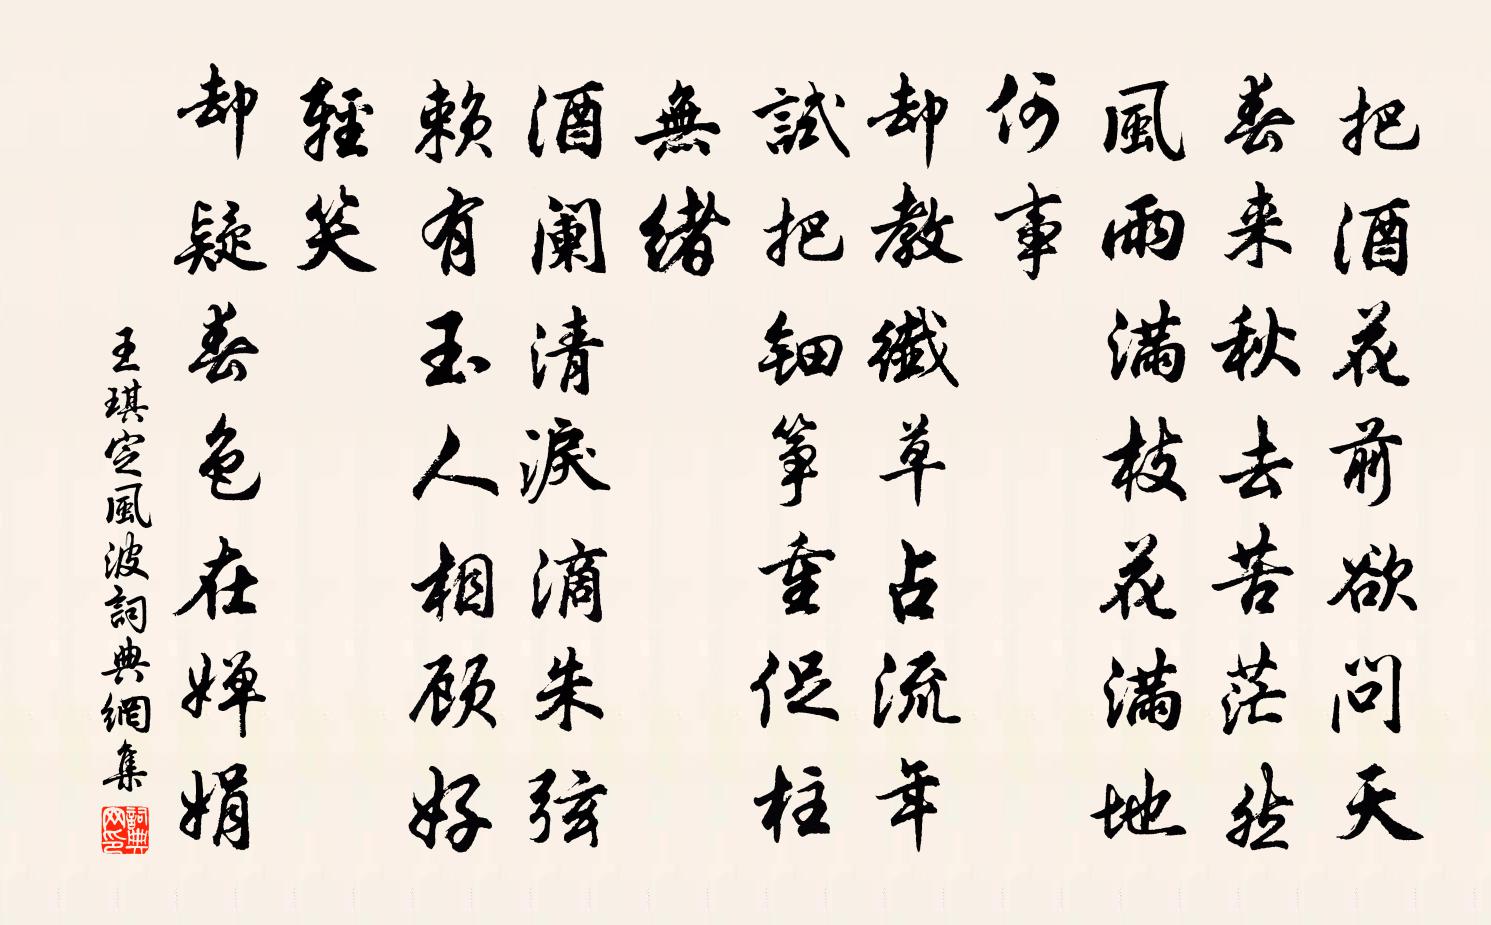 把酒花前欲问天
春来秋去苦茫然
風雨满枝花满地
何事
却教纖草占流年
試把钿筝重促柱
無緒
酒阑清淚滴朱弦
赖有玉人相顾好
輕笑
却疑春色在婵娟
王琪定風波詞典網集
詞典网印